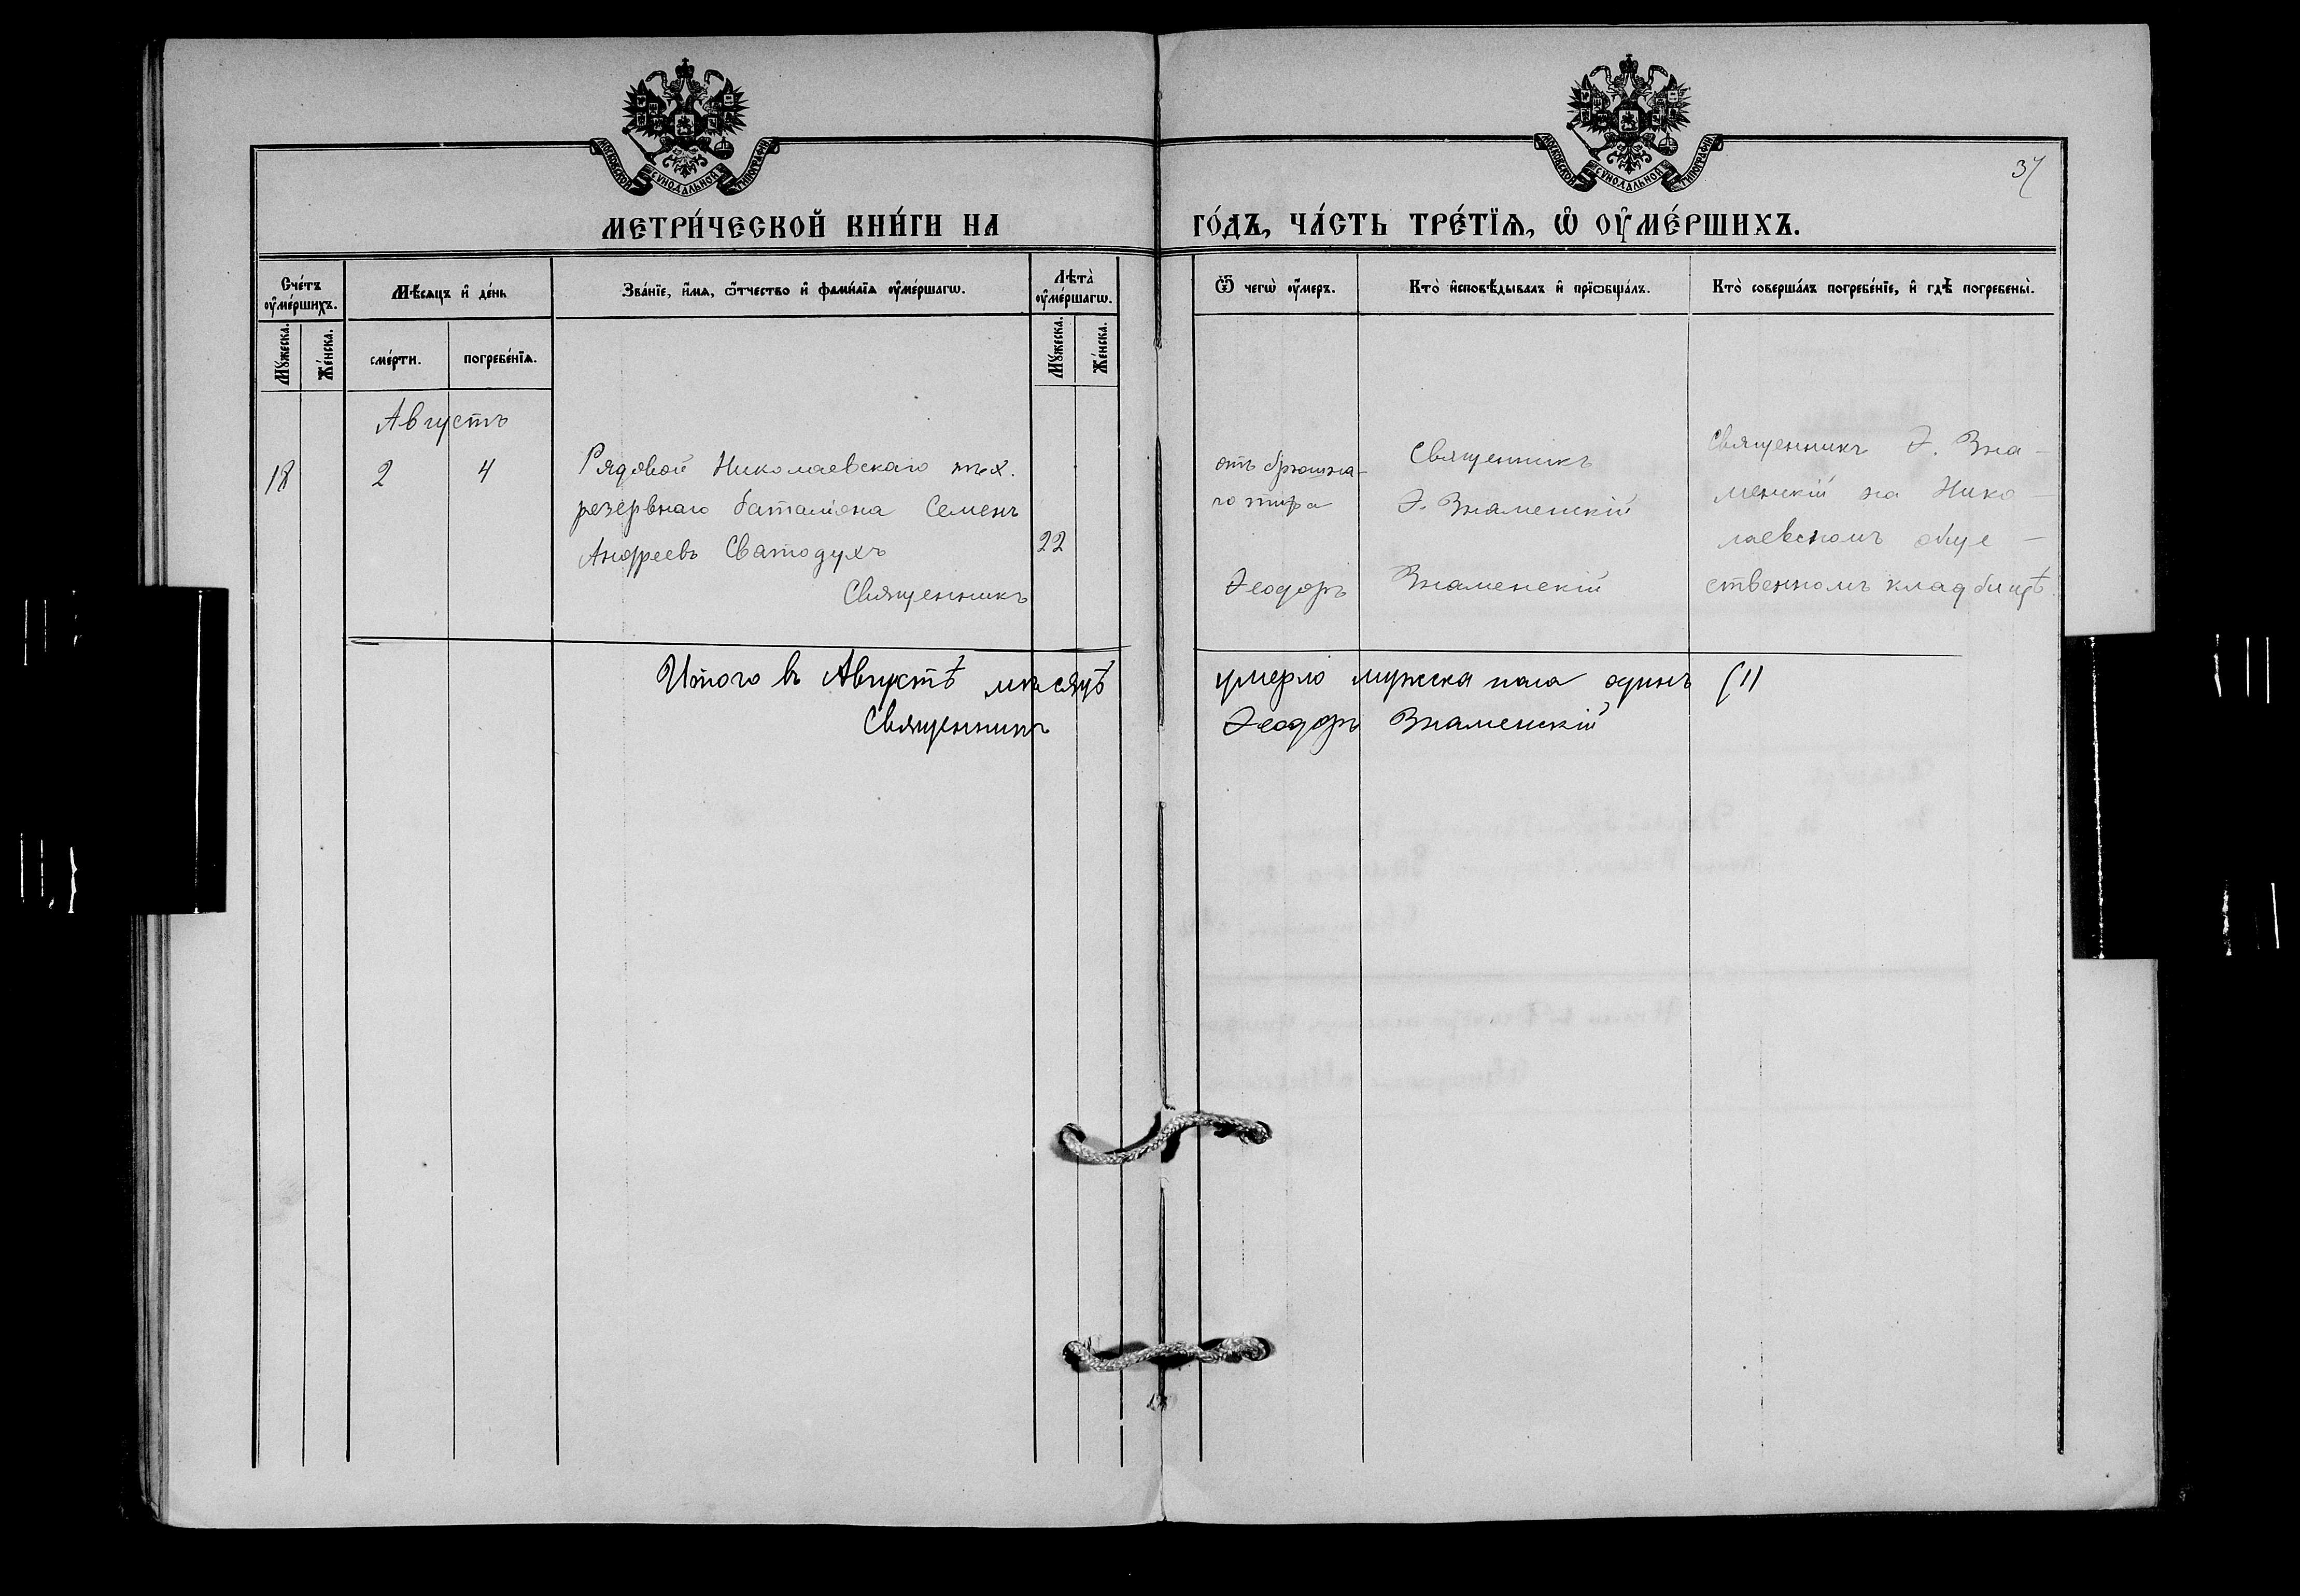 МОСКОВСКОЙ СѴНОДАЛЬНОЙ ТИПОГРАФІИ
МОСКОВСКОЙ СѴНОДАЛЬНОЙ ТИПОГРАФІИ
37
МЕТРИ́ЧЕСКОЙ КНИ́ГИ НА ГО́ДЪ, ЧА́СТЬ ТРЕ́ТЇѦ, Ѡ҆ ОУ҆МЕ́РШИХЪ.
Сче́тъ оу҆ме́ршихъ.
Мѣ́сяцъ и҆ де́нь
Зва́нїе, и҆́мя, ѻ҆́тчество и҆ фами́лїя оу҆ме́ршагѡ.
Лѣта̀ оу҆ме́ршагѡ.
Ѿ чегѡ̀ оу҆́меръ.
Кто̀ и҆сповѣ́дывалъ и҆ прїѡбща́лъ.
Кто̀ соверша́лъ погребе́нїе, и҆ гдѣ̀ погребены̀.
Мꙋ́жеска.
Же́нска.
сме́рти.
погребе́нїя.
Мꙋ́жеска.
Же́нска.
Августъ
18 2 4
Рядовой Николаевскаго пѣх.
резервнаго баталіона Семенъ
Андреевъ Сватодухъ
22
отъ брюшна-
го тифа
Священникъ
Ѳ. Знаменскій
Священникъ Ѳ. Зна-
менскій на Нико-
лаевскомъ обще-
ственномъ кладбищѣ.
Священникъ Ѳеодоръ Знаменскій
Итого въ Августѣ мѣсяцѣ умерло мужска пола одинъ (1)
Священникъ Ѳеодоръ Знаменскій